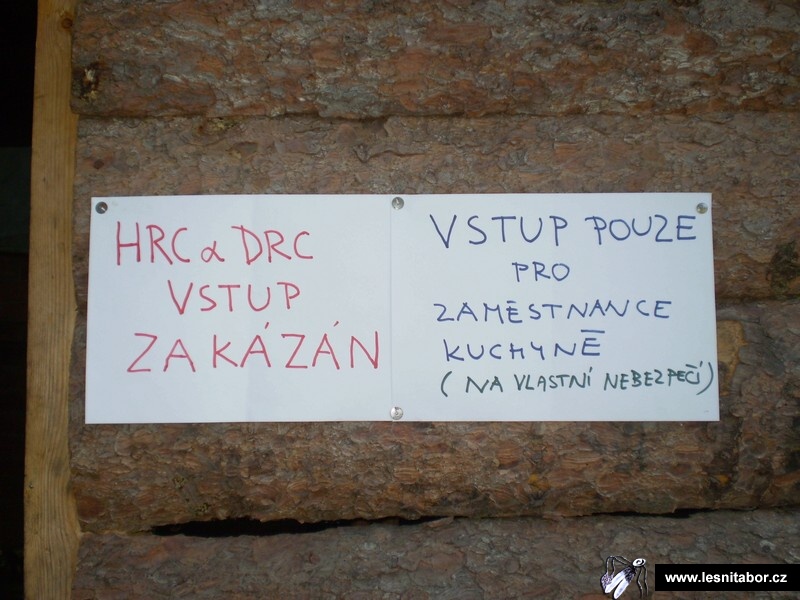 HRC a DRC
VSTUP
ZAKÁZÁN
VSTUP POUZE
PRO
ZAMĚSTNANCE
KUCHYNĚ
(NA VLASTNÍ NEBEZPEČÍ)
www.lesnitabor.cz